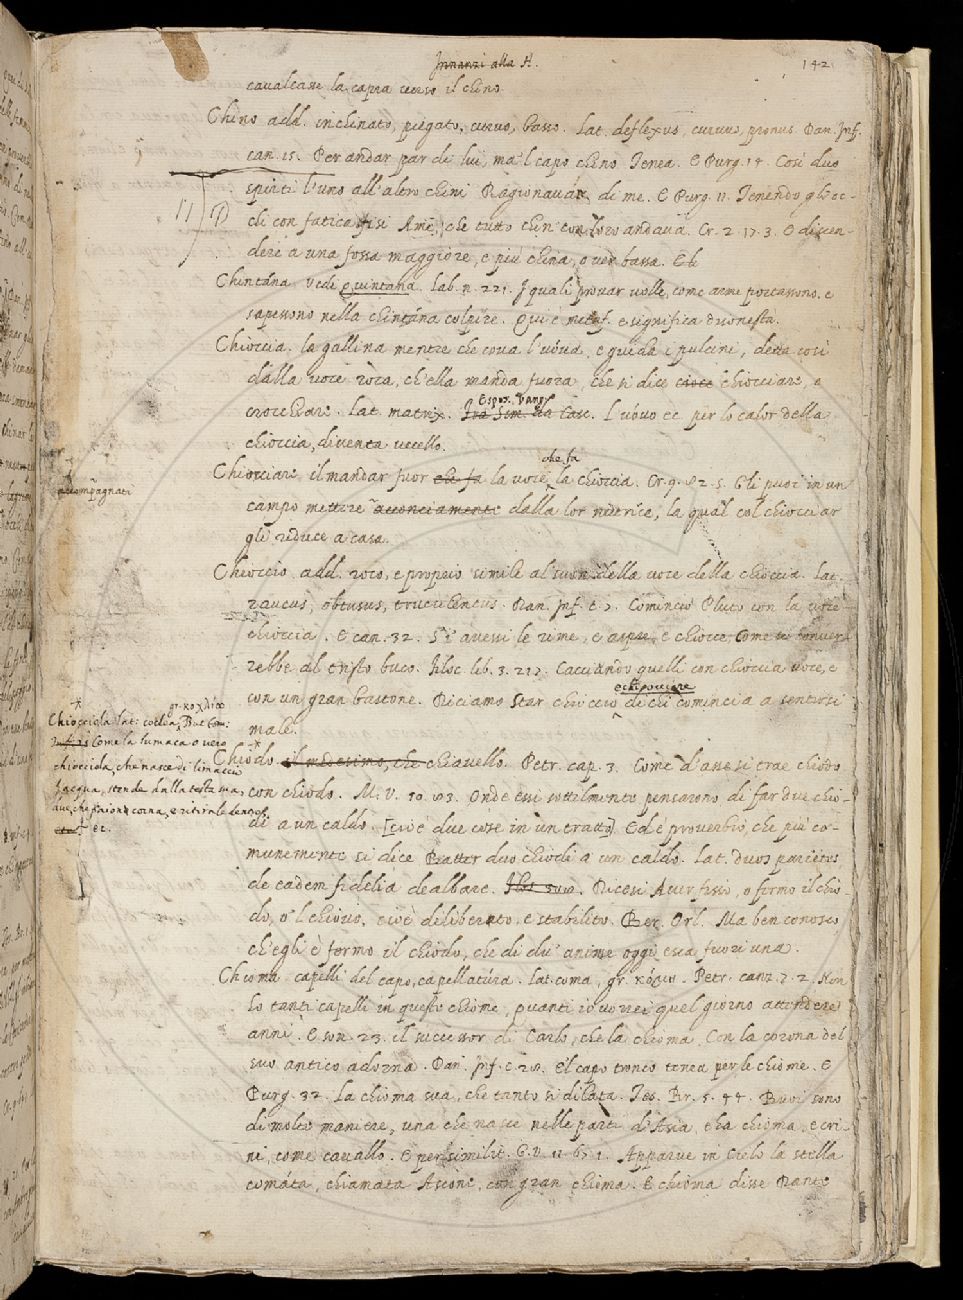 Innanzi alla H.
142
cavalcare la capra verso il chino.
Chino add. inchinato, piegato, curvo, basso. Lat. deflexus, curvus, pronus. Dan. Inf.
can. 15. Per andar par di lui, ma 'l capo chino Tenea. E Purg. 14. Così duo
spirti l'uno all'altro chini Ragionavan di me. E Purg. 11. Tenendo gli oc-
chi con fatica fisi A me, che tutto chin con loro andava. Cr. 2. 17. 3. O discen-
dere a una fossa maggiore, e più china, o ver bassa. E
Chintána vedi Quintana. Lab. n. 221. I quali provar volle, come arme portassono, e
sapessono nella chintána colpire. Qui è metaf. e significa disonesta.
Chioccia. la gallina mentre che cova l'uova, e guida i pulcini, detta così
dalla voce roca, ch'ella manda fuora, che si dice chiocciare, e
crocchiare. Lat. matrix.
Espos. Vang.
L'uovo ec per lo calor della
chioccia, diventa uccello.
che fa
Chiocciare il mandar fuor che fa la voce la chioccia. Cr. 9. 82. 5. Gli puoi in un
accompagnati
campo mettere acconciamente dalla lor nutrice, la qual col chiocciar
gli reduce a casa.
Chioccio add. roco, e proprio simile al suon della voce della chioccia. Lat.
raucus, obtusus, truculentus. Dan. Inf. c. 7. Cominciò Pluto con la voce
chioccia. E can. 32. S'i' avessi le rime, e aspre e chiocce, Come si conver-
rebbe al tristo buco. Filoc. lib. 3. 217. Cacciando quelli con chioccia voce, e
e chiocciare
con un gran bastone. Diciamo Star chioccio di chi comincia a sentirsi
male.
gr. κοχλίας
Chiocciola Lat: coclea, But
Come la lumaca o vero
chiocciola, che nasce di limaccio
d'acqua, stende dalla testa sua,
due, che paiono corna, e ritirale dentro
ec.
Chiodo il medesimo, che chiavello. Petr. cap. 3. Come d'asse si trae chiodo
con chiodo. M. V. 10. 83. Onde essi sottilmente pensarono di far due chio-
di a un caldo. [cioè due cose in un tratto] Ed è proverbio, che più co-
munemente si dice Batter duo chiodi a un caldo. Lat. duos parietes
de eadem fidelia dealbare. Dicesi Aver fisso, o fermo il chio-
do, o 'l chiovo, cioè deliberato, e stabilito. Ber. Orl. Ma ben conosco
ch'egli è fermo il chiodo, che di du' anime oggi esca fuori una.
Chioma capelli del capo, capellatúra. Lat. coma, gr. κόμη. Petr. canz. 7. 2. Non
ho tanti capelli in queste chiome, quanti io vorrei quel giorno attendere
anni. E son. 23. il successor di Carlo, che la chioma, Con la corona del
suo antico adorna. Dan. Inf. c. 28. E 'l capo tronco tenea per le chiome. E
Purg. 32. La chioma sua, che tanto si dilata. Tes. Br. 5. 44. Buoi sono
di molte maniere, una che nasce nelle parti d'Asia, e ha chioma, e cri-
ni, come cavallo. E per similit. G. V. 11. 67. 1. Apparve in Cielo la stella
comáta, chiamata Ascone, con gran chioma. E chioma disse Dante